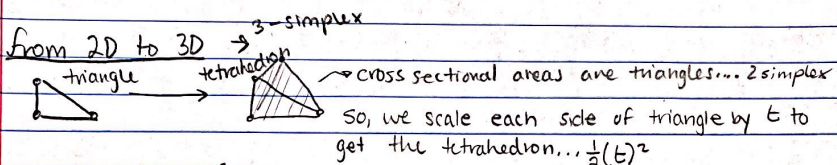 from 2D to 3D → 3-simplex
triangle → tetrahedron → cross sectional areas are triangles.... 2 simplex
So, we scale each side of triangle by t to
get the tetrahedron... 1/2(t)²